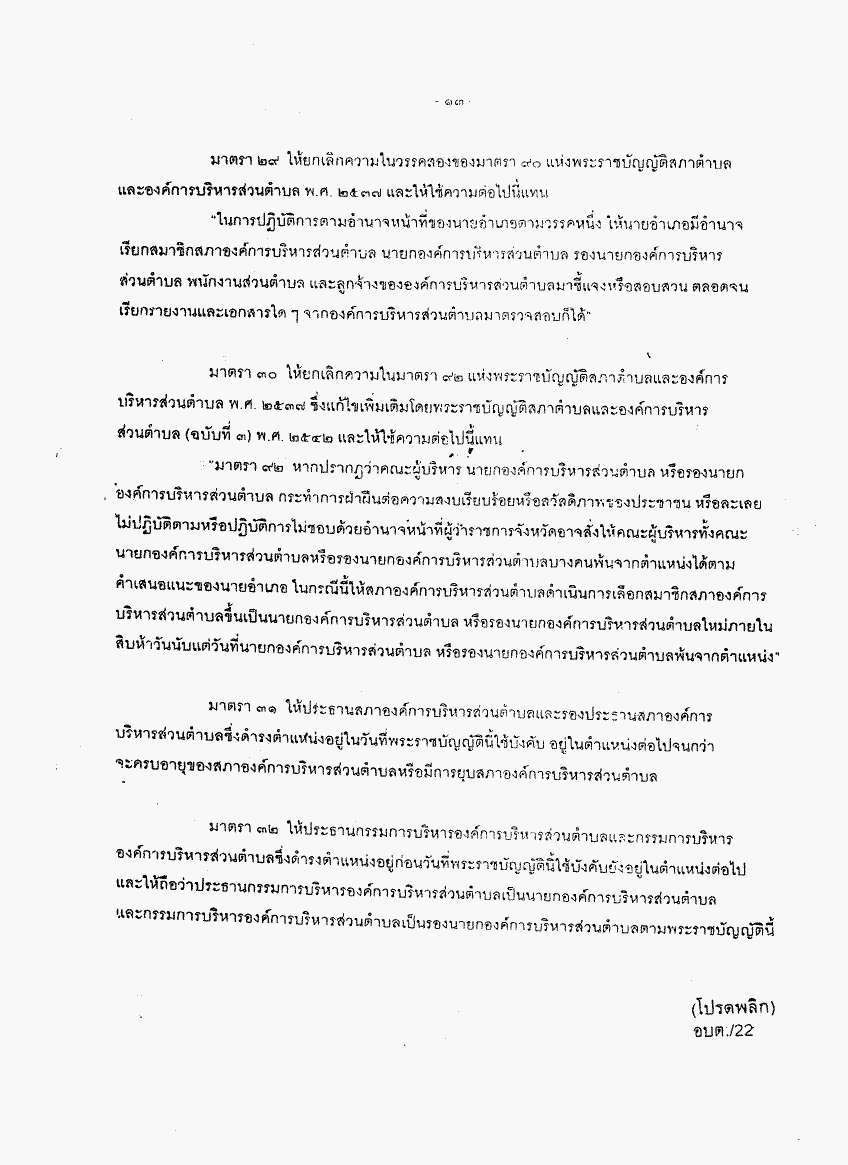 - ๑๓ -
มาตรา ๒๙ ให้ยกเลิกความในวรรคสองของมาตรา ๙๐ แห่งพระราชบัญญัติสภาตำบล
และองค์การบริหารส่วนตำบล พ.ศ. ๒๕๓๗ และให้ใช้ความต่อไปนี้แทน
"ในการปฏิบัติการตามอำนาจหน้าที่ของนายอำเภอตามวรรคหนึ่ง ให้นายอำเภอมีอำนาจ
เรียกสมาชิกสภาองค์การบริหารส่วนตำบล นายกองค์การบริหารส่วนตำบล รองนายกองค์การบริหาร
ส่วนตำบล พนักงานส่วนตำบล และลูกจ้างขององค์การบริหารส่วนตำบลมาชี้แจงหรือสอบสวน ตลอดจน
เรียกรายงานและเอกสารใด ๆ จากองค์การบริหารส่วนตำบลมาตรวจสอบก็ได้"
มาตรา ๓๐ ให้ยกเลิกความในมาตรา ๙๒ แห่งพระราชบัญญัติสภาตำบลและองค์การ
บริหารส่วนตำบล พ.ศ. ๒๕๓๗ ซึ่งแก้ไขเพิ่มเติมโดยพระราชบัญญัติสภาตำบลและองค์การบริหาร
ส่วนตำบล (ฉบับที่ ๓) พ.ศ. ๒๕๔๒ และให้ใช้ความต่อไปนี้แทน
"มาตรา ๙๒ หากปรากฏว่าคณะผู้บริหาร นายกองค์การบริหารส่วนตำบล หรือรองนายก
องค์การบริหารส่วนตำบล กระทำการฝ่าฝืนต่อความสงบเรียบร้อยหรือสวัสดิภาพของประชาชน หรือละเลย
ไม่ปฏิบัติตามหรือปฏิบัติการไม่ชอบด้วยอำนาจหน้าที่ผู้ว่าราชการจังหวัดอาจสั่งให้คณะผู้บริหารทั้งคณะ
นายกองค์การบริหารส่วนตำบลหรือรองนายกองค์การบริหารส่วนตำบลบางคนพ้นจากตำแหน่งได้ตาม
คำเสนอแนะของนายอำเภอ ในกรณีนี้ให้สภาองค์การบริหารส่วนตำบลดำเนินการเลือกสมาชิกสภาองค์การ
บริหารส่วนตำบลขึ้นเป็นนายกองค์การบริหารส่วนตำบล หรือรองนายกองค์การบริหารส่วนตำบลใหม่ภายใน
สิบห้าวันนับแต่วันที่นายกองค์การบริหารส่วนตำบล หรือรองนายกองค์การบริหารส่วนตำบลพ้นจากตำแหน่ง"
มาตรา ๓๑ ให้ประธานสภาองค์การบริหารส่วนตำบลและรองประธานสภาองค์การ
บริหารส่วนตำบลซึ่งดำรงตำแหน่งอยู่ในวันที่พระราชบัญญัตินี้ใช้บังคับ อยู่ในตำแหน่งต่อไปจนกว่า
จะครบอายุของสภาองค์การบริหารส่วนตำบลหรือมีการยุบสภาองค์การบริหารส่วนตำบล
มาตรา ๓๒ ให้ประธานกรรมการบริหารองค์การบริหารส่วนตำบลและกรรมการบริหาร
องค์การบริหารส่วนตำบลซึ่งดำรงตำแหน่งอยู่ก่อนวันที่พระราชบัญญัตินี้ใช้บังคับยังอยู่ในตำแหน่งต่อไป
และให้ถือว่าประธานกรรมการบริหารองค์การบริหารส่วนตำบลเป็นนายกองค์การบริหารส่วนตำบล
และกรรมการบริหารองค์การบริหารส่วนตำบลเป็นรองนายกองค์การบริหารส่วนตำบลตามพระราชบัญญัตินี้
(โปรดพลิก)
อบต./22